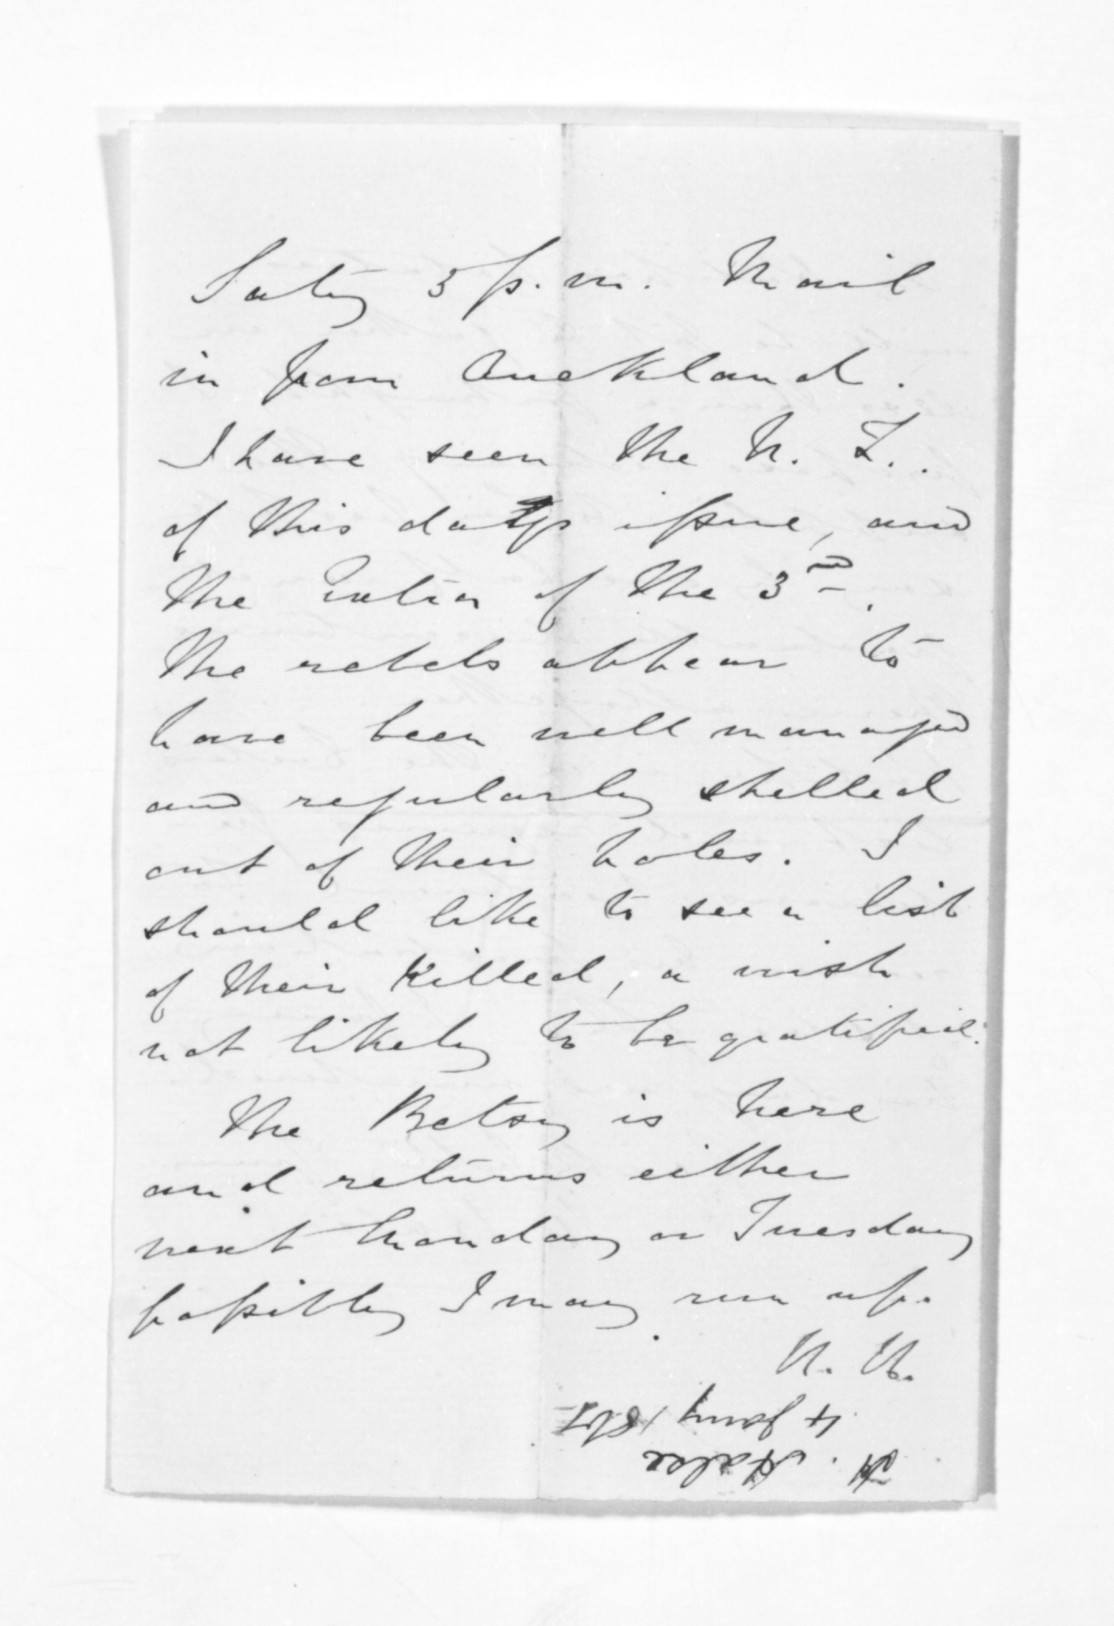 Saty 3 p.m. Mail
in from Auckland.
I have seen the N. Z..
of this days issue, and
the Extra of the 3rd.
The rebels appear to
have been well managed
and regularly shelled
out of their holes. I
should like to see a list
of their killed, a wish
not likely to be gratified.
The Betsy is here
and returns either
next Monday or Tuesday
possibly I may run up.
4 Jany